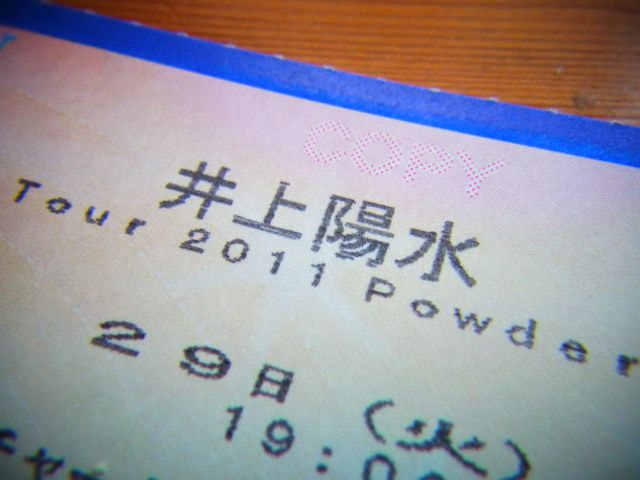 COPY
井上陽水
Tour 2011 Powder
29日(火)
19:0